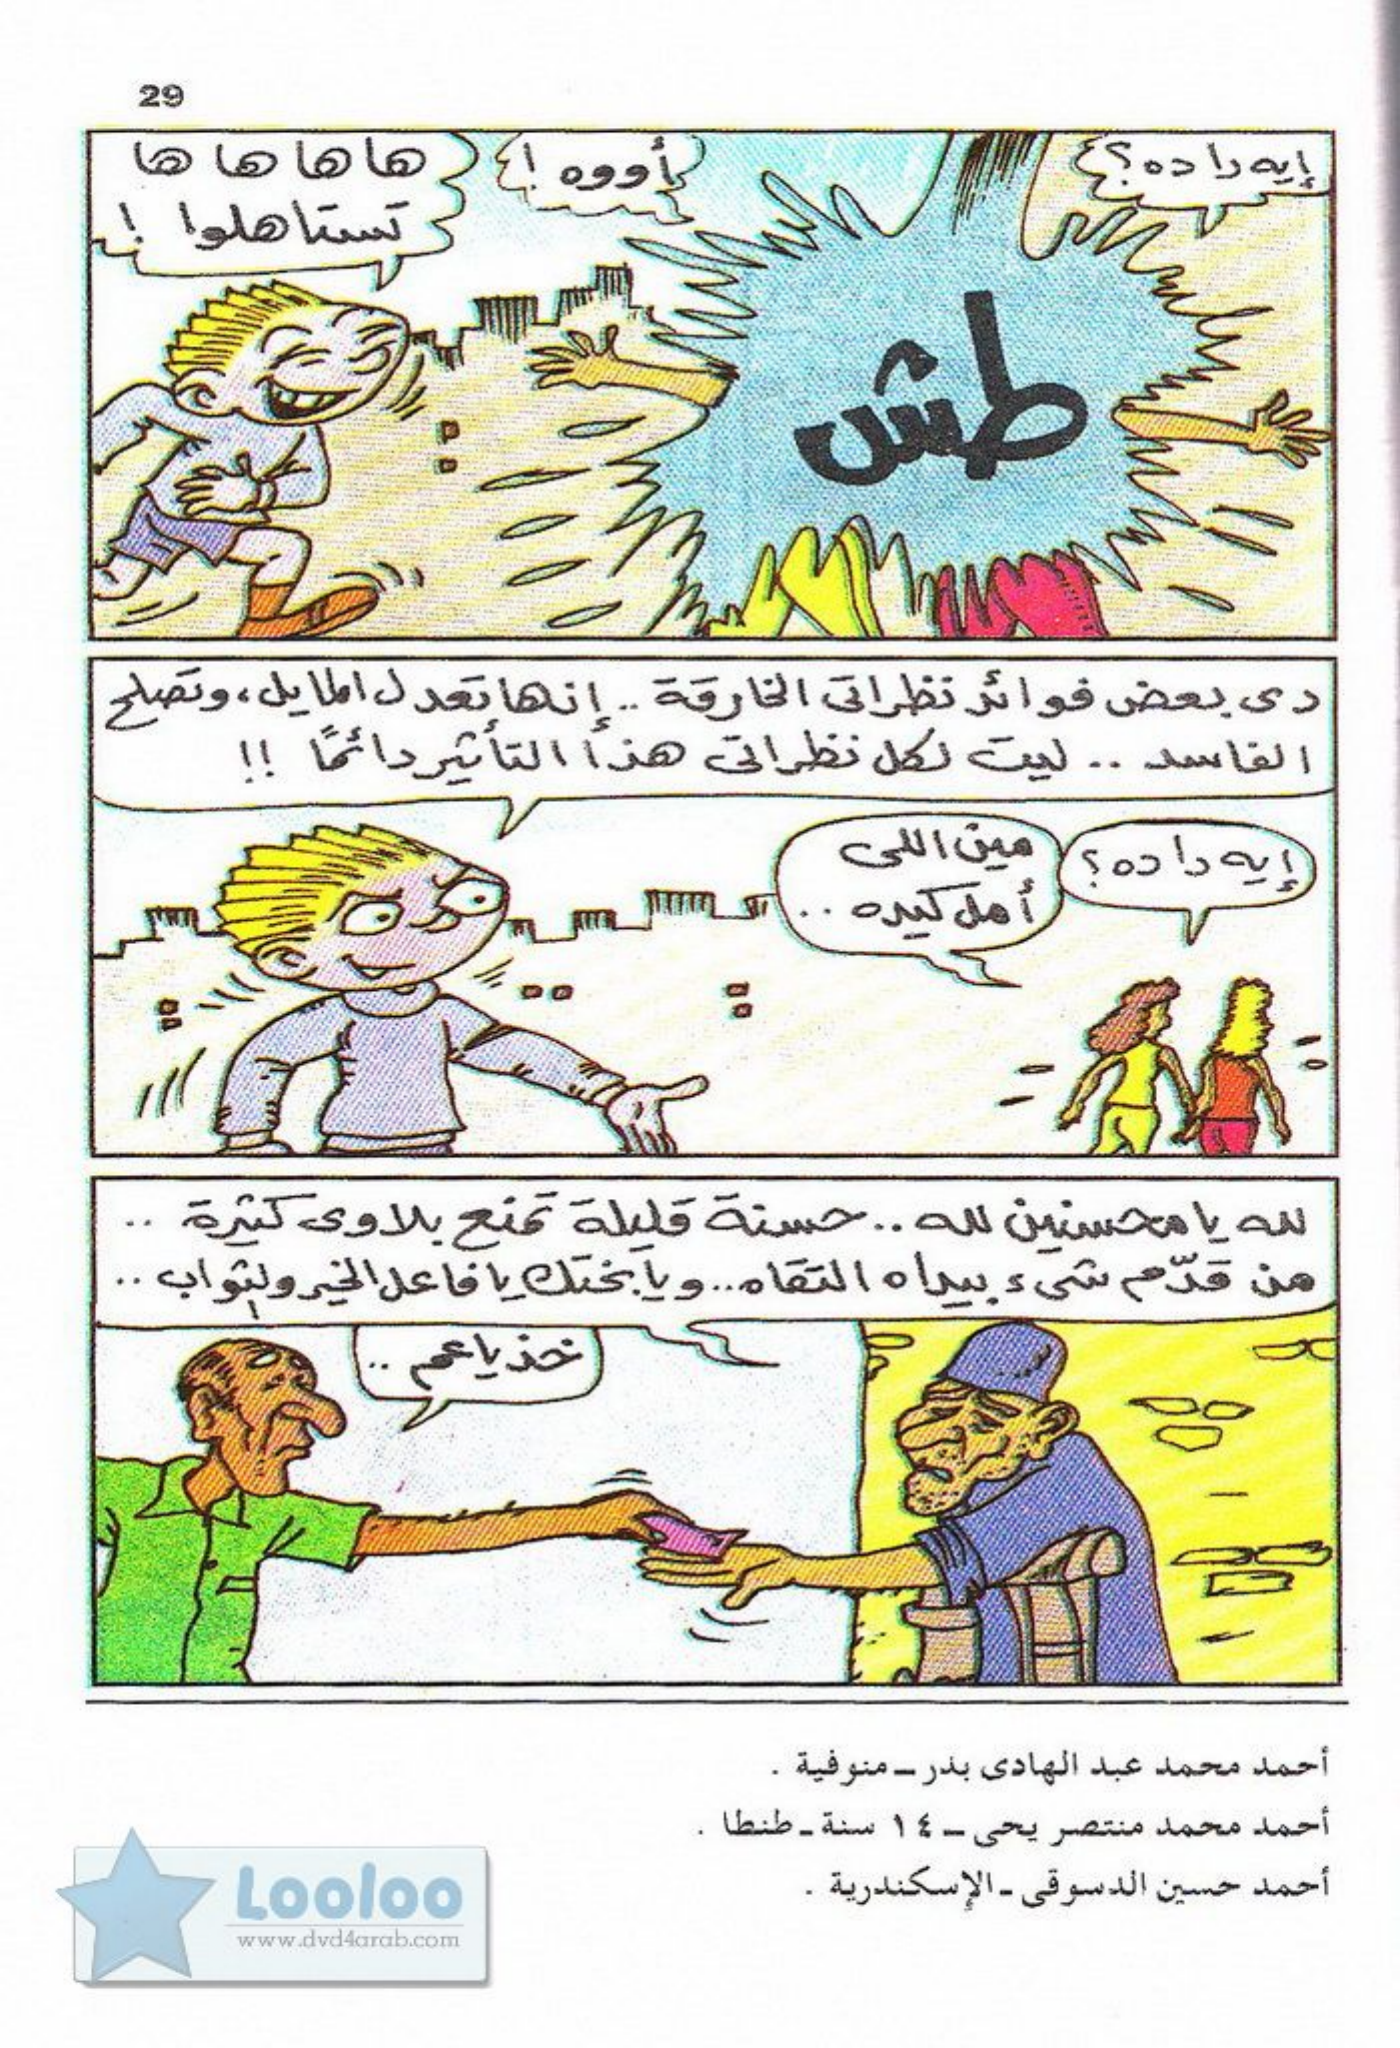 29
إيه دا ده؟
أووه !
ها ها ها ها
تستاهلوا !
طش
دى بعض فوائد نظراتى الخارقة .. إنها تعدل المايل، وتصلح
الفاسد .. ليت لكل نظراتى هذا التأثير دائمًا !!
إيه دا ده؟
مين اللى
أهل كيده ..
لله يا محسنين لله .. حسنة قليلة تمنع بلاوى كثيرة ..
من قدّم شىء بيداه التقاه... ويا بختك يا فاعل الخير ولثواب ..
خذ يا عم ..
أحمد محمد عبد الهادى بدر ـ منوفية .
أحمد محمد منتصر يحى ـ ١٤ سنة ـ طنطا .
أحمد حسين الدسوقى ـ الإسكندرية .
Looloo
www.dvd4arab.com